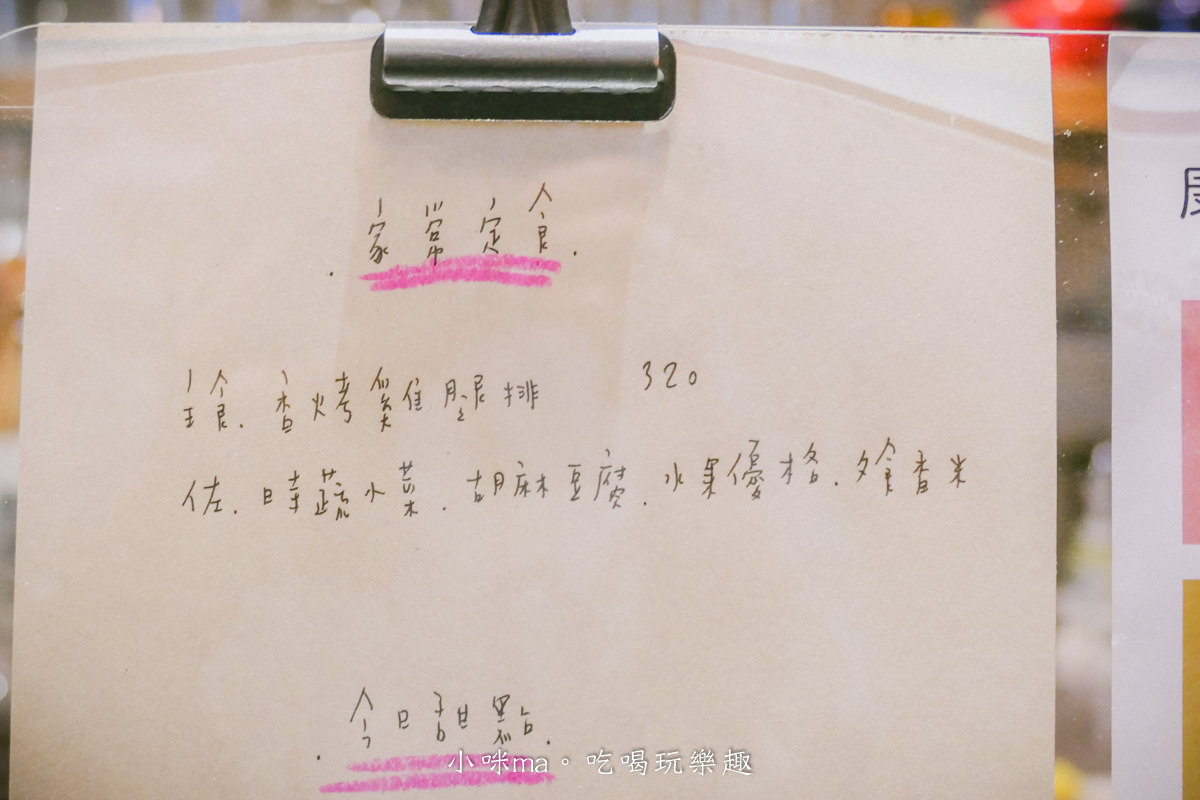 家常定食.
主食.香烤雞腿排 320
佐.時蔬小菜.胡麻豆腐.水果優格.飧香米
今日甜點.
小咪ma。吃喝玩樂趣